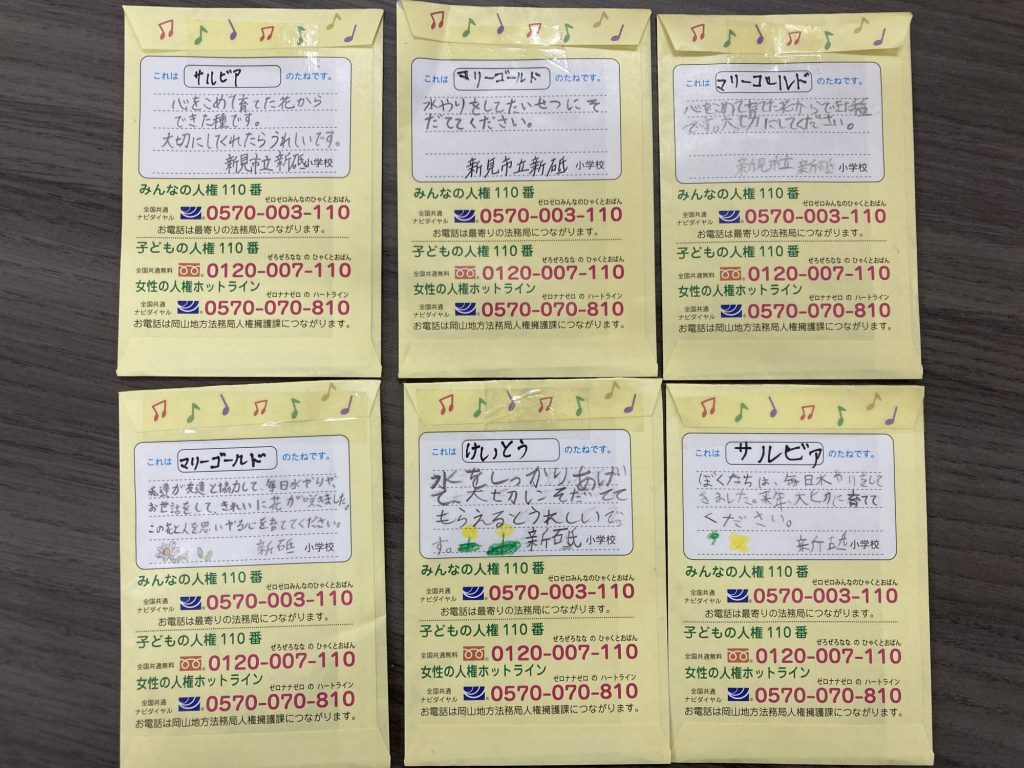 これは サルビア のたねです。
心をこめて育てた花から
できた種です。
大切にしてくれたらうれしいです。
新見市立新砥小学校
みんなの人権110番
ゼロゼロみんなのひゃくとおばん
全国共通
ナビダイヤル 0570-003-110
お電話は最寄りの法務局につながります。
子どもの人権110番
ぜろぜろなな の ひゃくとおばん
全国共通無料 0120-007-110
女性の人権ホットライン
ゼロナナゼロ の ハートライン
全国共通
ナビダイヤル 0570-070-810
お電話は岡山地方法務局人権擁護課につながります。
これは マリーゴールド のたねです。
水やりをしてたいせつにそ
だててください。
新見市立新砥小学校
みんなの人権110番
ゼロゼロみんなのひゃくとおばん
全国共通
ナビダイヤル 0570-003-110
お電話は最寄りの法務局につながります。
子どもの人権110番
ぜろぜろなな の ひゃくとおばん
全国共通無料 0120-007-110
女性の人権ホットライン
ゼロナナゼロ の ハートライン
全国共通
ナビダイヤル 0570-070-810
お電話は岡山地方法務局人権擁護課につながります。
これは マリーゴールド のたねです。
心をこめて育てた花からできた種
です。大切にしてください。
新見市立 新砥小学校
みんなの人権110番
ゼロゼロみんなのひゃくとおばん
全国共通
ナビダイヤル 0570-003-110
お電話は最寄りの法務局につながります。
子どもの人権110番
ぜろぜろなな の ひゃくとおばん
全国共通無料 0120-007-110
女性の人権ホットライン
ゼロナナゼロ の ハートライン
全国共通
ナビダイヤル 0570-070-810
お電話は岡山地方法務局人権擁護課につながります。
これは マリーゴールド のたねです。
私達が友達と協力して、毎日水やりや、
お世話をして、きれいに花がさきました。
この花と人を思いやる心を育ててください。
新砥 小学校
みんなの人権110番
ゼロゼロみんなのひゃくとおばん
全国共通
ナビダイヤル 0570-003-110
お電話は最寄りの法務局につながります。
子どもの人権110番
ぜろぜろなな の ひゃくとおばん
全国共通無料 0120-007-110
女性の人権ホットライン
ゼロナナゼロ の ハートライン
全国共通
ナビダイヤル 0570-070-810
お電話は岡山地方法務局人権擁護課につながります。
これは けいとう のたねです。
水をしっかりあげ
て、大切にそだてて
もらえるとうれしいで
す。 新砥 小学校
みんなの人権110番
ゼロゼロみんなのひゃくとおばん
全国共通
ナビダイヤル 0570-003-110
お電話は最寄りの法務局につながります。
子どもの人権110番
ぜろぜろなな の ひゃくとおばん
全国共通無料 0120-007-110
女性の人権ホットライン
ゼロナナゼロ の ハートライン
全国共通
ナビダイヤル 0570-070-810
お電話は岡山地方法務局人権擁護課につながります。
これは サルビア のたねです。
ぼくたちは、毎日水やりをして
きました。来年、大切に育てて
ください。
新砥小学校
みんなの人権110番
ゼロゼロみんなのひゃくとおばん
全国共通
ナビダイヤル 0570-003-110
お電話は最寄りの法務局につながります。
子どもの人権110番
ぜろぜろなな の ひゃくとおばん
全国共通無料 0120-007-110
女性の人権ホットライン
ゼロナナゼロ の ハートライン
全国共通
ナビダイヤル 0570-070-810
お電話は岡山地方法務局人権擁護課につながります。